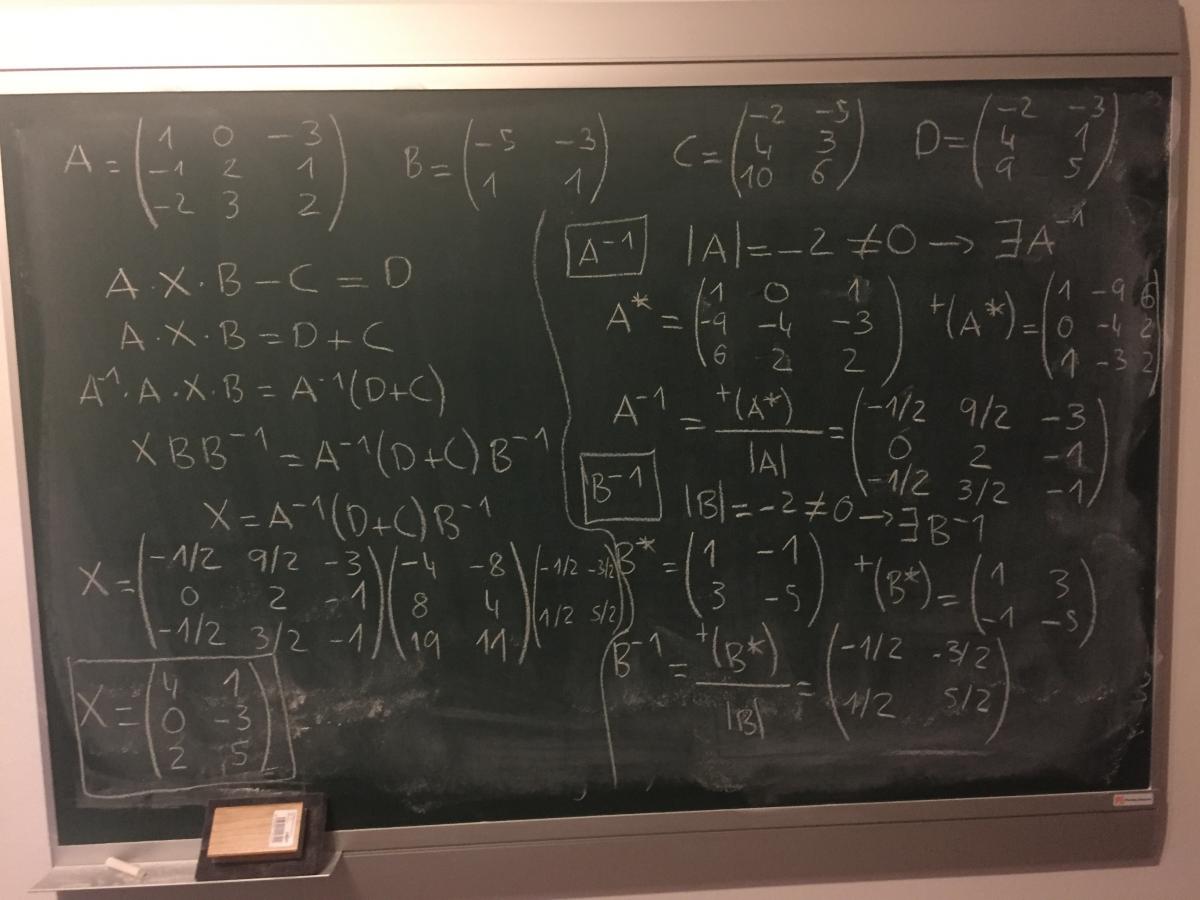 A = (1 0 -3; -1 2 1; -2 3 2) B = (-5 -3; 1 1) C = (-2 -5; 4 3; 10 6) D = (-2 -3; 4 1; 9 5)
A · X · B - C = D
A · X · B = D + C
A⁻¹ · A · X · B = A⁻¹(D+C)
X B B⁻¹ = A⁻¹(D+C) B⁻¹
X = A⁻¹(D+C) B⁻¹
X = (-1/2 9/2 -3; 0 2 -1; -1/2 3/2 -1) (-4 -8; 8 4; 19 11) (-1/2 -3/2; 1/2 5/2)
X = (4 1; 0 -3; 2 5)
A⁻¹ |A| = -2 ≠ 0 → ∃ A⁻¹
A* = (1 0 1; -9 -4 -3; 6 2 2) ᵗ(A*) = (1 -9 6; 0 -4 2; 1 -3 2)
A⁻¹ = ᵗ(A*) / |A| = (-1/2 9/2 -3; 0 2 -1; -1/2 3/2 -1)
B⁻¹ |B| = -2 ≠ 0 → ∃ B⁻¹
B* = (1 -1; 3 -5) ᵗ(B*) = (1 3; -1 -5)
B⁻¹ = ᵗ(B*) / |B| = (-1/2 -3/2; 1/2 5/2)